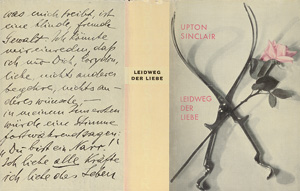 was mich treibt, ist
eine blinde, fremde
Gewalt. Ich könnte
mir einreden, daß
ich nur Dich, Corydon,
liebe, nichts anderes
begehre, nichts an-
deres wünsche,
in meinem
würde eine Stimme
fortwährend sagen:
„Du bist ein Narr!"
Ich liebe alle Kräfte
ich liebe das Leben
LEIDWEG
DER LIEBE
UPTON
SINCLAIR
LEIDWEG
DER
LIEBE